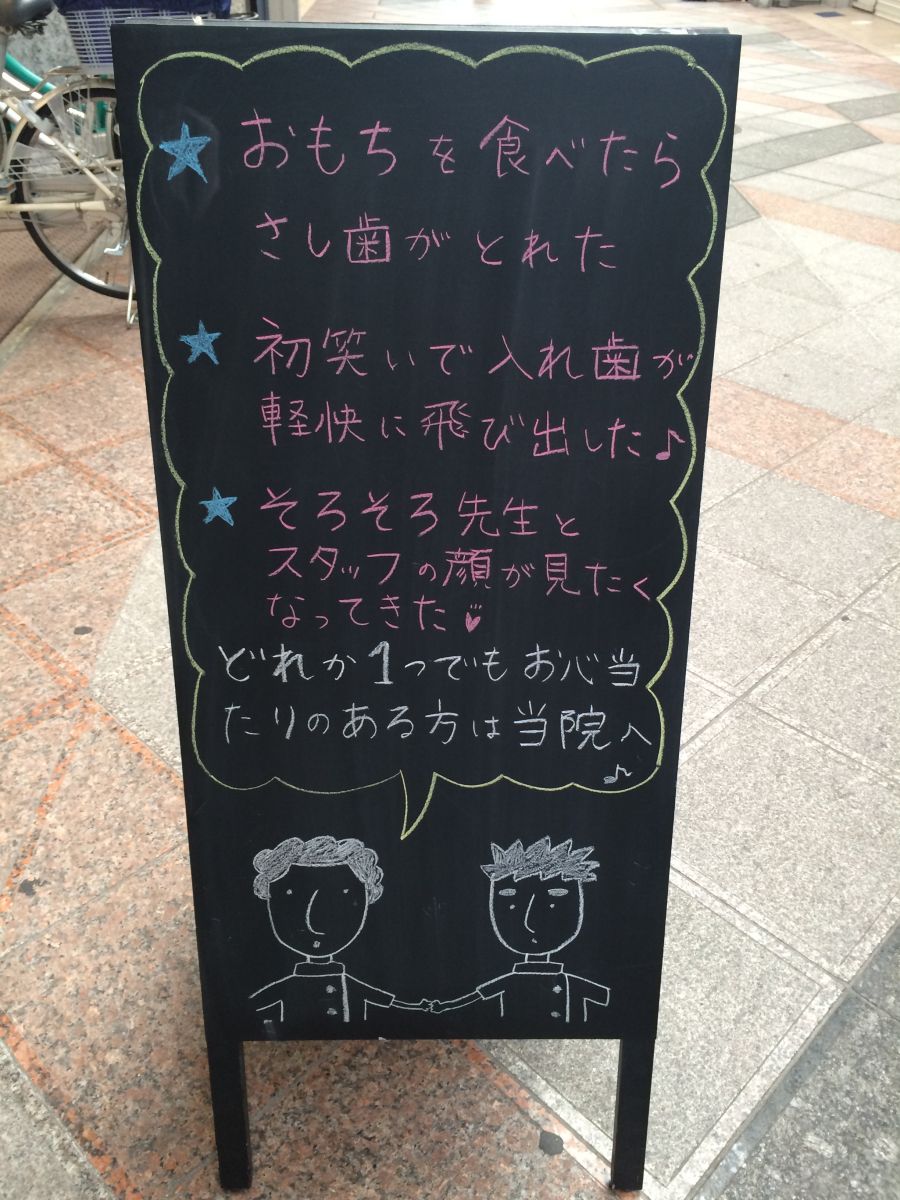 ★おもちを食べたら
さし歯がとれた
★初笑いで入れ歯が
軽快に飛び出した♪
★そろそろ先生と
スタッフの顔が見たく
なってきた♥
どれか1つでもお心当
たりのある方は当院へ
♪